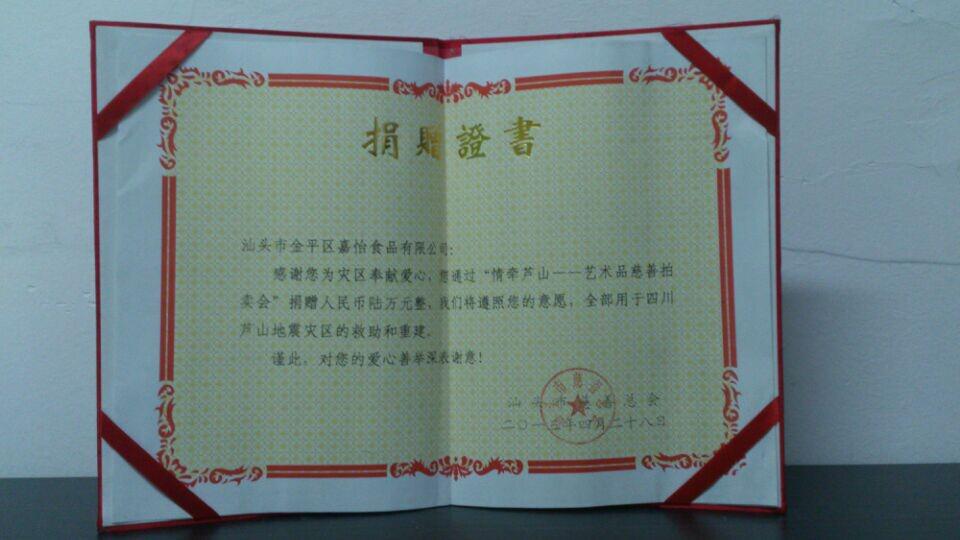 捐贈證書
汕头市金平区嘉怡食品有限公司：
感谢您为灾区奉献爱心，您通过“情牵芦山——艺术品慈善拍
卖会”捐赠人民币陆万元整，我们将遵照您的意愿，全部用于四川
芦山地震灾区的救助和重建。
谨此，对您的爱心善举深表谢意！
汕头市慈善总会
二〇一三年四月二十八日